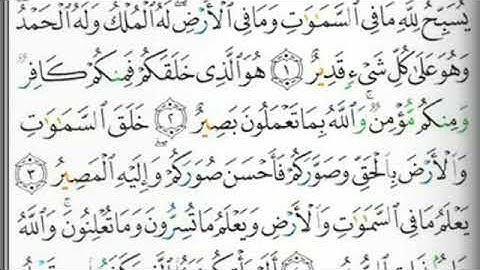 يُسَبِّحُ لِلَّهِ مَا فِى ٱلسَّمَٰوَٰتِ وَمَا فِى ٱلْأَرْضِ ۖ لَهُ ٱلْمُلْكُ وَلَهُ ٱلْحَمْدُ ۖ
وَهُوَ عَلَىٰ كُلِّ شَىْءٍ قَدِيرٌ ١ هُوَ ٱلَّذِى خَلَقَكُمْ فَمِنكُمْ كَافِرٌ
وَمِنكُم مُّؤْمِنٌ ۚ وَٱللَّهُ بِمَا تَعْمَلُونَ بَصِيرٌ ٢ خَلَقَ ٱلسَّمَٰوَٰتِ
وَٱلْأَرْضَ بِٱلْحَقِّ وَصَوَّرَكُمْ فَأَحْسَنَ صُوَرَكُمْ ۖ وَإِلَيْهِ ٱلْمَصِيرُ ٣
يَعْلَمُ مَا فِى ٱلسَّمَٰوَٰتِ وَٱلْأَرْضِ وَيَعْلَمُ مَا تُسِرُّونَ وَمَا تُعْلِنُونَ ۚ وَٱللَّهُ